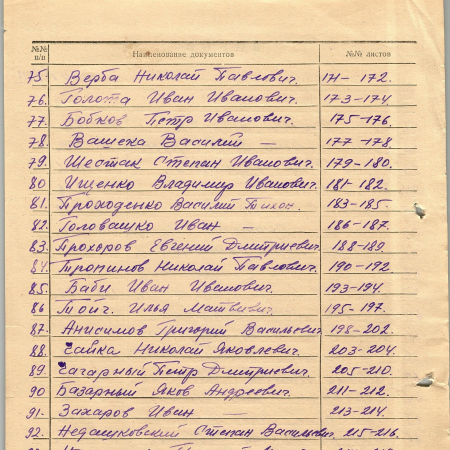 №№ п/п Наименование документов №№ листов
75. Верба Николай Павлович. 171-172.
76. Голота Иван Иванович. 173-174.
77. Бобков Петр Иванович. 175-176.
78. Вашека Василий — 177-178.
79. Шестак Степан Иванович. 179-180.
80 Ищенко Владимир Иванович. 181-182.
81. Проходенко Василий Тихон. 183-185.
82. Головашко Иван — 186-187.
83. Прохоров Евгений Дмитриевич. 188-189
84. Тропинов Николай Павлович. 190-192
85. Баби Иван Иванович. 193-194.
86 Илья Матвеевич. 195-197.
87. Анисимов Григорий Васильевич 198-202.
88. Чайка Николай Яковлевич. 203-204.
89. Чагарный Петр Дмитриевич. 205-210.
90 Базарный Яков Андреевич. 211-212.
91. Захаров Иван — 213-214.
92. Недашковский Степан Васильевич. 215-216.